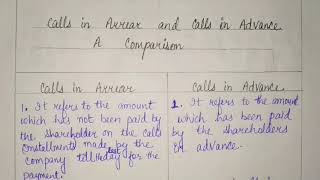 Calls in Arrear and Calls in Advance
A Comparison
Calls in Arrear
1. It refers to the amount
which has not been paid by
the shareholder on the calls
(Installments) made by the
company till the last day for the
payment.
Calls in Advance
1. It refers to the amount
which has been paid
by the shareholders
in advance.